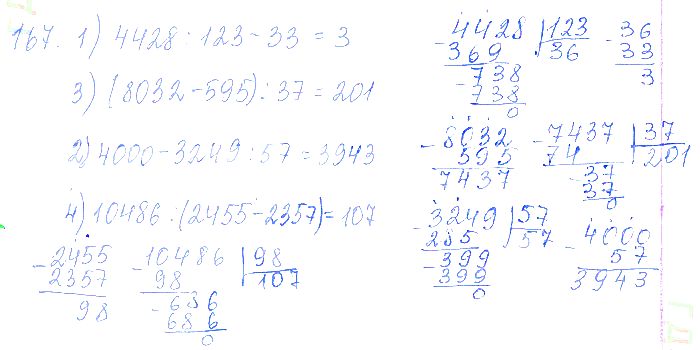 167. 1) 4428 : 123 - 33 = 3
3) (8032 - 595) : 37 = 201
2) 4000 - 3249 : 57 = 3943
4) 10486 : (2455 - 2357) = 107
- 2455
2357
98
- 10486 | 98
98 | 107
- 686
686
0
- 4428 | 123
369 | 36
- 738
738
0
- 36
33
3
- 8032
595
7437
- 7437 | 37
74 | 201
- 37
37
0
- 3249 | 57
285 | 57
- 399
399
0
- 4000
57
3943